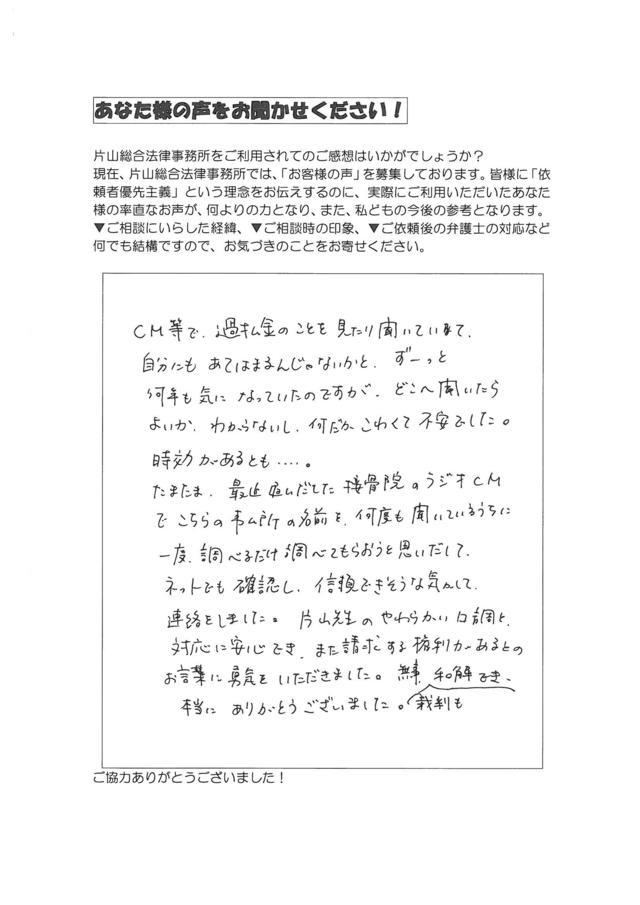 あなた様の声をお聞かせください！
片山総合法律事務所をご利用されてのご感想はいかがでしょうか？
現在、片山総合法律事務所では、「お客様の声」を募集しております。皆様に「依
頼者優先主義」という理念をお伝えするのに、実際にご利用いただいたあなた
様の率直なお声が、何よりの力となり、また、私どもの今後の参考となります。
▼ご相談にいらした経緯、▼ご相談時の印象、▼ご依頼後の弁護士の対応など
何でも結構ですので、お気づきのことをお寄せください。
CM等で、過払金のことを見たり聞いていて、
自分にもあてはまるんじゃないかと、ずーっと
何年も気になっていたのですが、どこへ聞いたら
よいか、わからないし、何だかこわくて不安でした。
時効があるとも‥‥。
たまたま、最近通いだした接骨院のラジオCM
でこちらの事ム所の名前を、何度も聞いているうちに
一度、調べるだけ調べてもらおうと思いだして、
ネットでも確認し、信頼できそうな気がして、
連絡をしました。片山先生のやわらかい口調と、
対応に安心でき、また請求する権利があるとの
お言葉に勇気をいただきました。無事、和解でき、
本当にありがとうございました。裁判も
ご協力ありがとうございました！